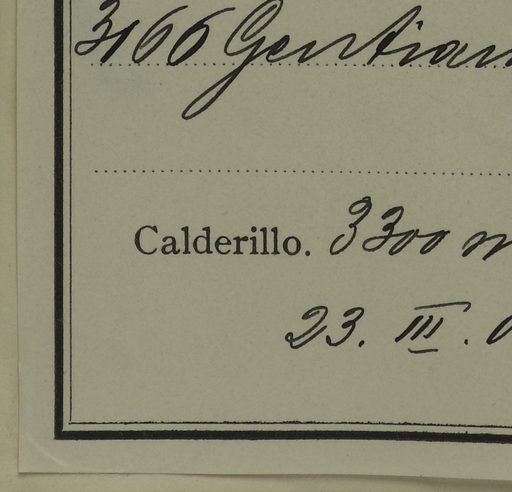 3166 Gentian
Calderillo. 3300 m
23. III. 0